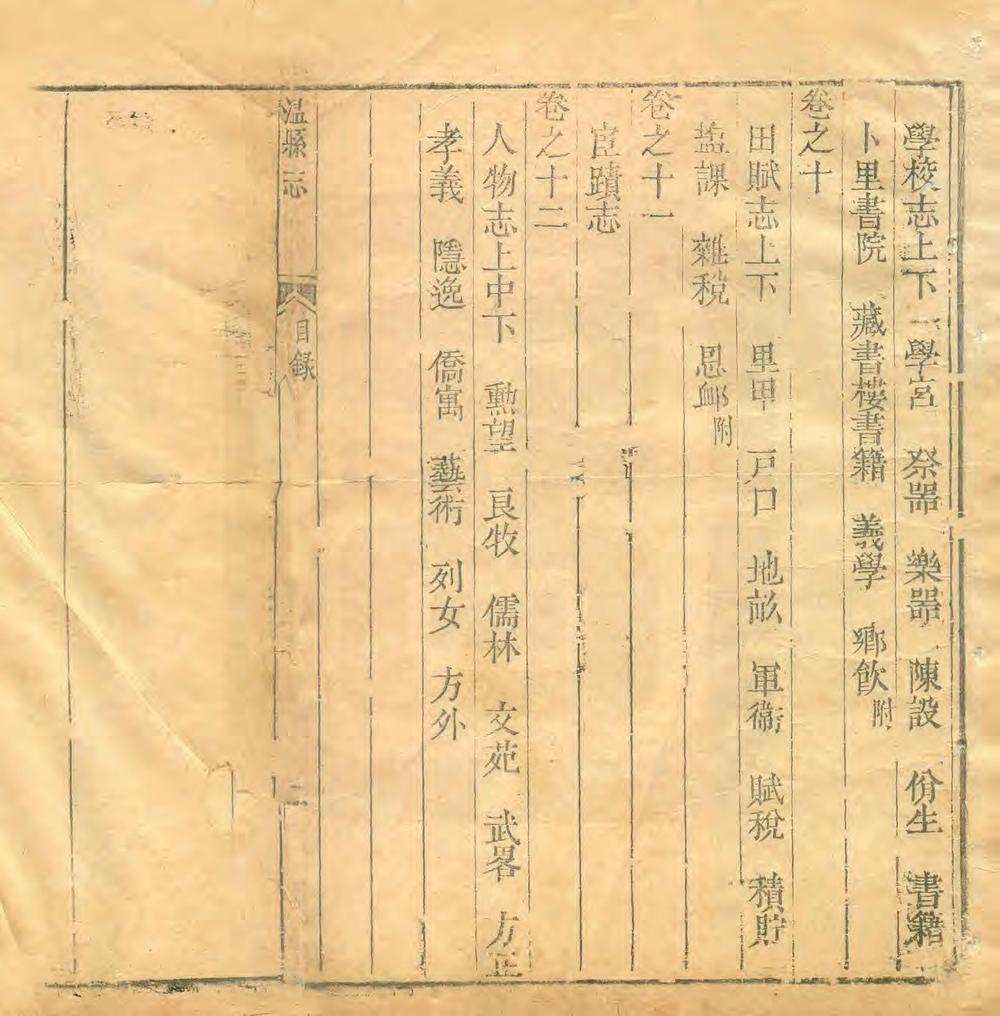 學校志上下 學宮 祭器 樂器 陳設 佾生 書籍
卜里書院 藏書樓書籍 義學 鄉飲附
卷之十
田賦志上下 里甲 戸口 地畝 軍衞 賦稅 積貯
盐課 雜稅 恩衈附
卷之十一
宦蹟志
卷之十二
人物志上中下 勲望 良牧 儒林 文苑 武畧 方正
孝義 隱逸 僑寓 藝術 列女 方外
温縣志 目録 二